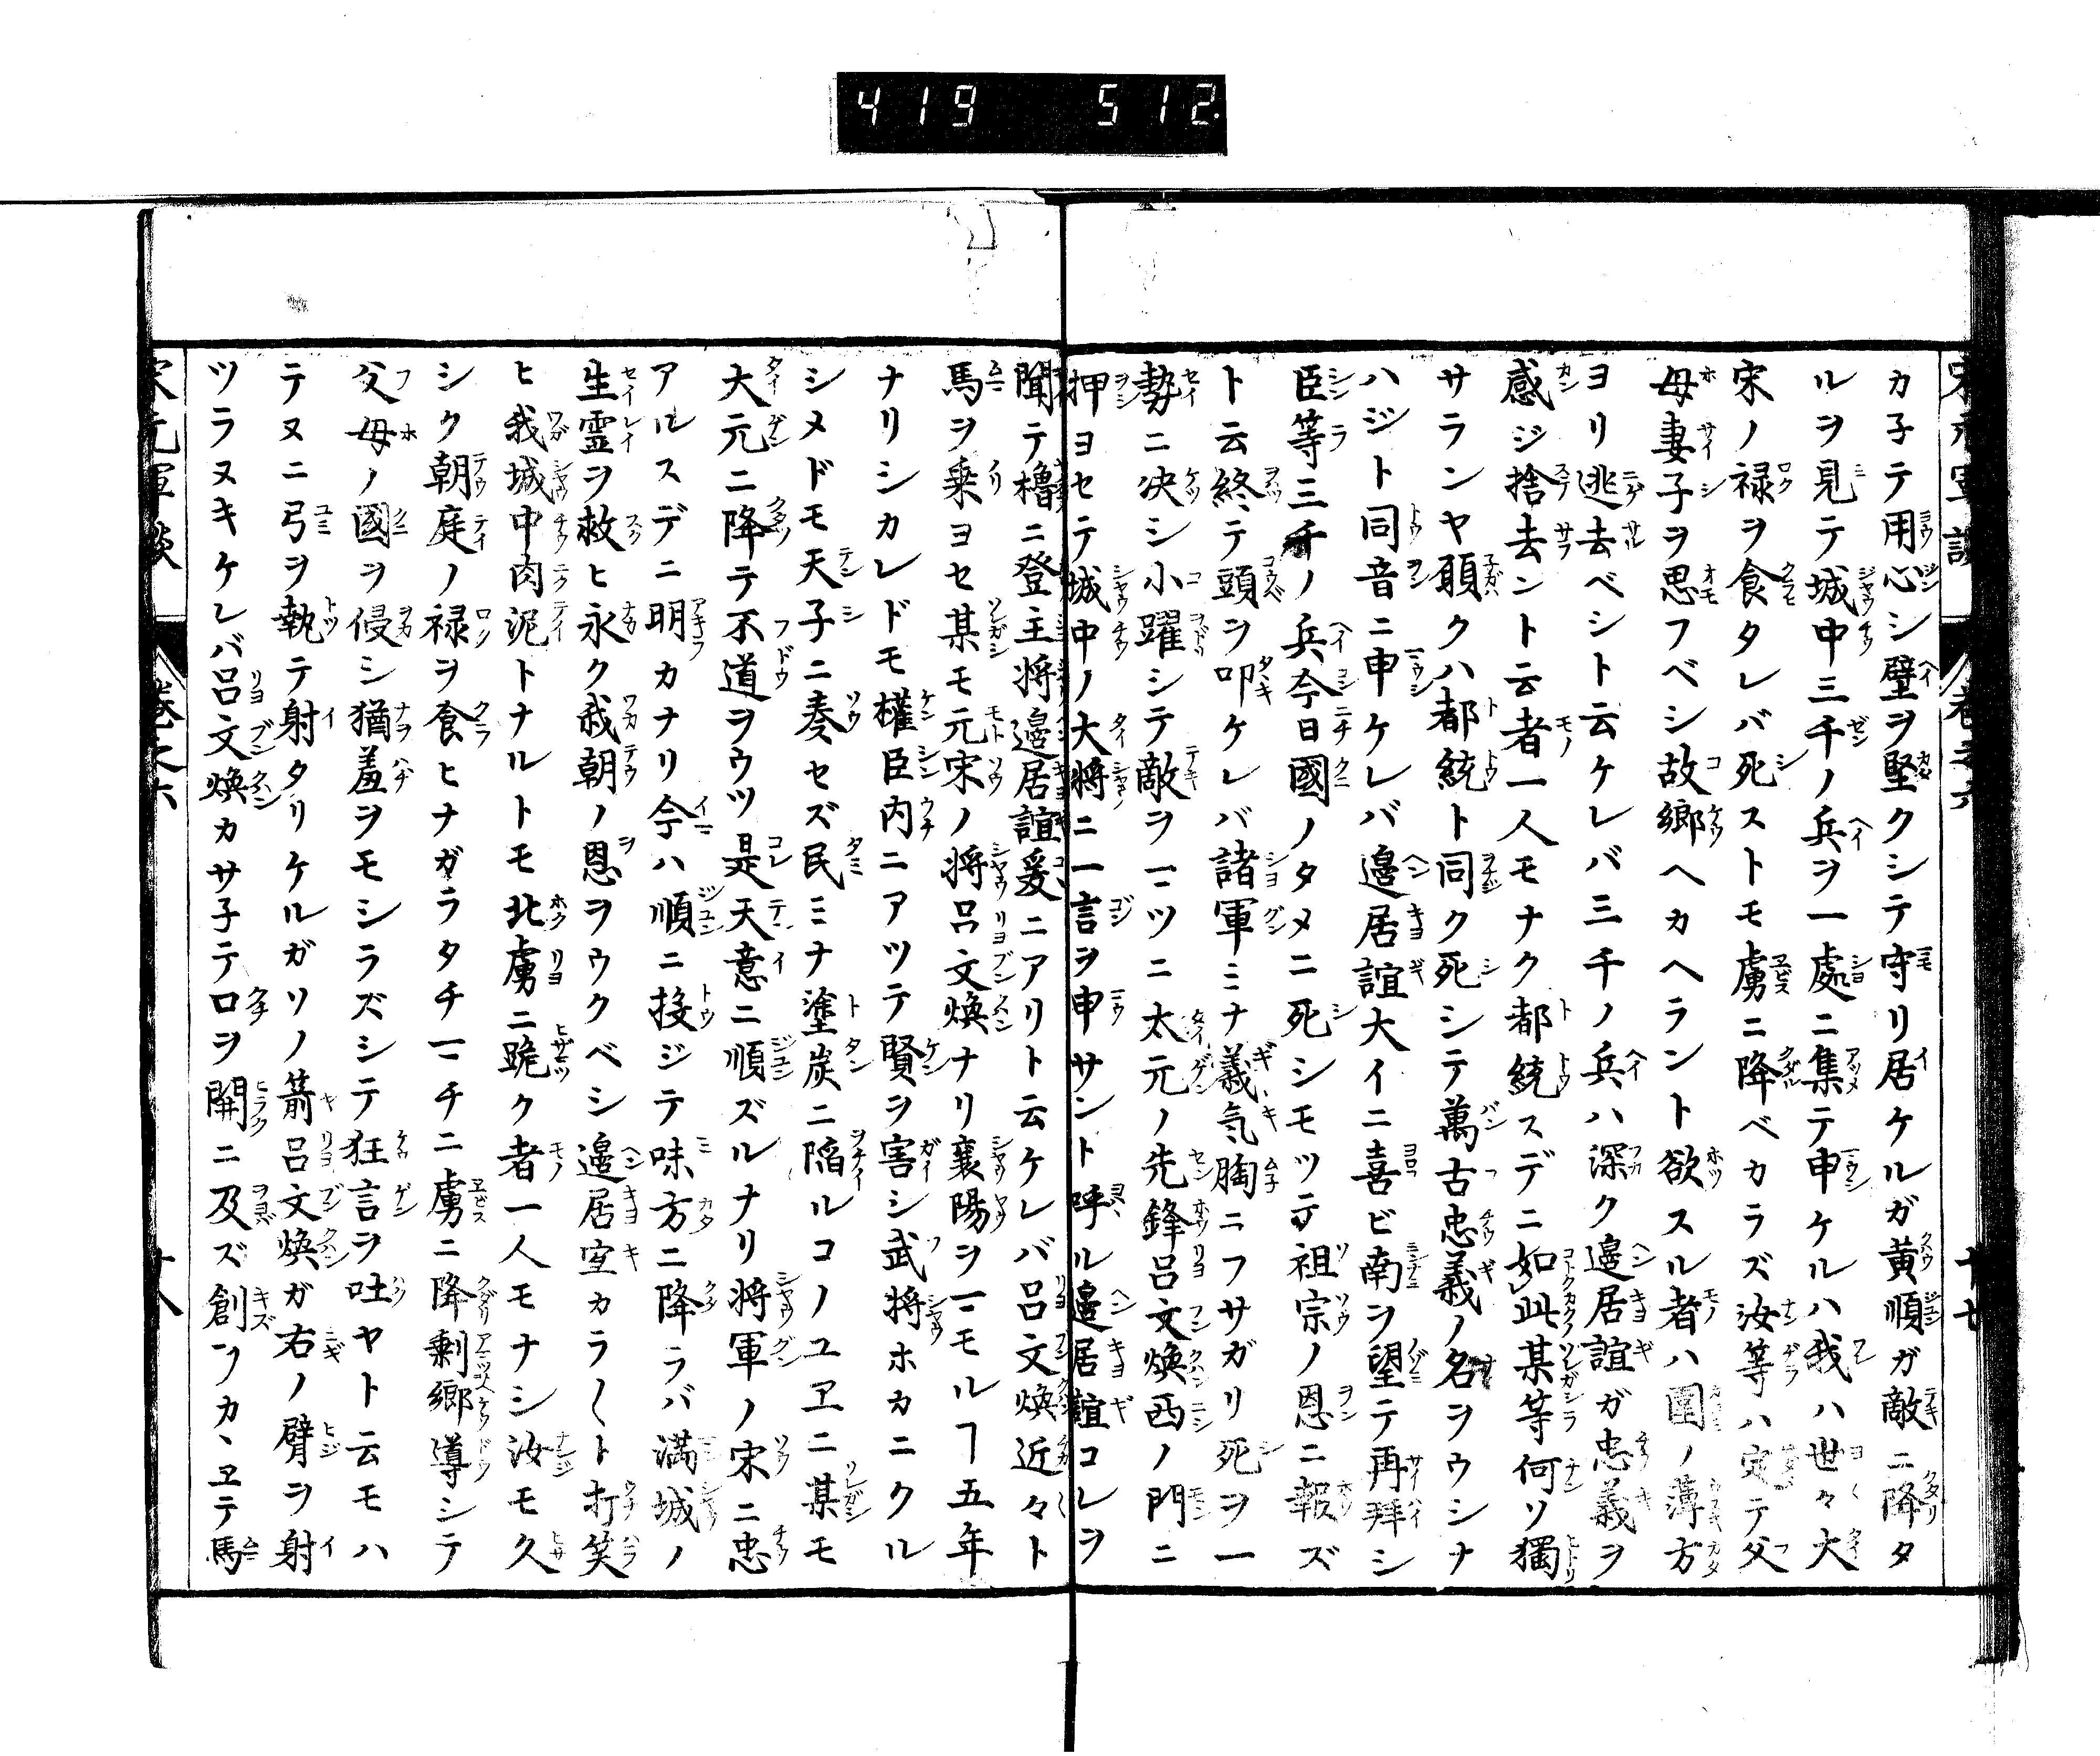 419 512
カ子テ用心シ壁ヲ堅クシテ守リ居ケルガ黄順ガ敵ニ降タ
ルヲ見テ城中三千ノ兵ヲ一處ニ集テ申ケルハ我ハ世々大
宋ノ禄ヲ食タレバ死ストモ虜ニ降ベカラズ汝等ハ定テ父
母妻子ヲ思フベシ故郷ヘカヘラント欲スル者ハ圍ノ薄方
ヨリ逃去ベシト云ケレバ三千ノ兵ハ深ク邉居誼ガ忠義ヲ
感ジ捨去ント云者一人モナク都統スデニ如此某等何ソ獨
サランヤ願クハ都統ト同ク死シテ萬古忠義ノ名ヲウシナ
ハジト同音ニ申ケレバ邉居誼大イニ喜ビ南ヲ望テ再拜シ
臣等三千ノ兵今日國ノタメニ死シモツテ祖宗ノ恩ニ報ズ
ト云終テ頭ヲ叩ケレバ諸軍ミナ義気胸ニフサガリ死ヲ一
勢ニ决シ小躍シテ敵ヲマツニ太元ノ先鋒呂文煥西ノ門ニ
押ヨセテ城中ノ大將ニ一言ヲ申サント呼ル邉居誼コレヲ
聞テ櫓ニ登主将邉居誼爰ニアリト云ケレバ呂文煥近々ト
馬ヲ乗ヨセ某モ元宋ノ将呂文煥ナリ襄陽ヲマモルヿ五年
ナリシカレドモ權臣内ニアツテ賢ヲ害シ武将ホカニクル
シメドモ天子ニ奏セズ民ミナ塗炭ニ陥ルコノユヱニ某モ
大元ニ降テ不道ヲウツ是天意ニ順ズルナリ将軍ノ宋ニ忠
アルスデニ明カナリ今ハ順ニ投ジテ味方ニ降ラバ満城ノ
生霊ヲ救ヒ永ク我朝ノ恩ヲウクベシ邉居宜カラ〱ト打笑
ヒ我城中肉泥トナルトモ北虜ニ跪ク者一人モナシ汝モ久
シク朝庭ノ禄ヲ食ヒナガラタチマチニ虜ニ降剰郷導シテ
父母ノ國ヲ侵シ猶羞ヲモシラズシテ狂言ヲ吐ヤト云モハ
テヌニ弓ヲ執テ射タリケルガソノ箭呂文煥ガ右ノ臂ヲ射
ツラヌキケレバ呂文煥カサ子テ口ヲ開ニ及ズ創ヲカヽヱテ馬
宋元軍談 巻之六 十八